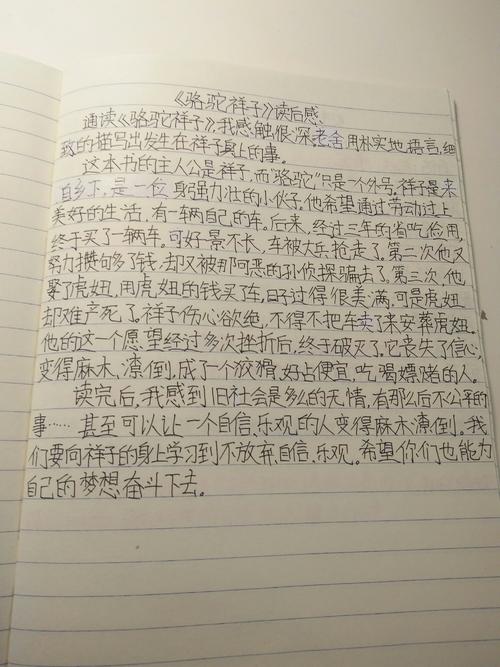 《骆驼祥子》读后感
通读《骆驼祥子》,我感触很深,老舍用朴实地语言,细
致的描写出发生在祥子身上的事。
这本书的主人公是祥子,而"骆驼"只是一个外号。祥子是来
自乡下,是一位身强力壮的小伙子。他希望通过劳动过上
美好的生活,有一辆自己的车。后来,经过三年的省吃俭用,
终于买了一辆车。可好景不长,车被大兵抢走了。第二次他又
努力攒够多了钱,却又被那可恶的孔侦探骗去了。第三次,他
娶了虎妞,用虎妞的钱买了车,日子过得很美满,可是虎妞
却难产死了。祥子伤心欲绝,不得不把车卖了来安葬虎妞。
他的这一个愿望经过多次挫折后,终于破灭了。它丧失了信心,
变得麻木、潦倒,成了个狡猾,好占便宜,吃喝嫖赌的人。
读完后,我感到旧社会是多么的无情,有那么后不公平的
事……甚至可以让一个自信、乐观的人变得麻木潦倒。我
们要向祥子的身上学习到不放弃、自信、乐观。希望你们也能为
自己的梦想奋斗下去。